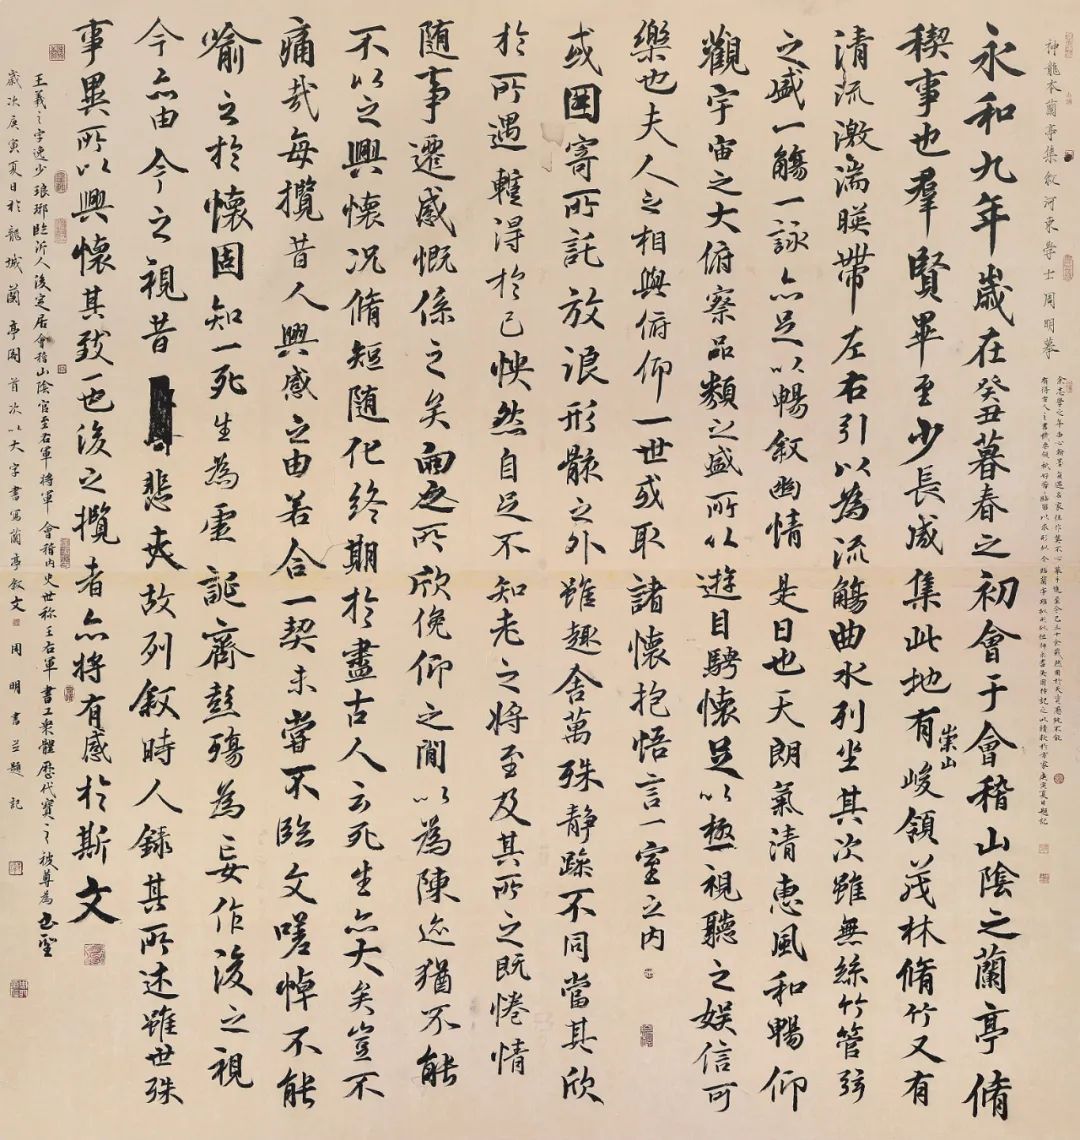 神龍本蘭亭集敘河東學士周明摹
永和九年歲在癸丑暮春之初會于會稽山陰之蘭亭脩
稧事也羣賢畢至少長咸集此地有
崇山
峻領茂林脩竹又有
清流激湍暎帶左右引以為流觴曲水列坐其次雖無絲竹管弦
之盛一觴一詠亦足以暢敘幽情是日也天朗氣清惠風和暢仰
觀宇宙之大俯察品類之盛所以遊目騁懷足以極視聽之娛信可
樂也夫人之相與俯仰一世或取諸懷抱悟言一室之內
或因寄所託放浪形骸之外雖趣舍萬殊靜躁不同當其欣
於所遇蹔得於己怏然自足不知老之將至及其所之既惓情
隨事遷感慨係之矣向之所欣俛仰之閒以為陳迹猶不能
不以之興懷況脩短隨化終期於盡古人云死生亦大矣豈不
痛哉每攬昔人興感之由若合一契未嘗不臨文嗟悼不能
喻之於懷固知一死生為虛誕齊彭殤為妄作後之視
今亦由今之視昔悲夫故列敘時人錄其所述雖世殊
事異所以興懷其致一也後之攬者亦將有感於斯文
王羲之字逸少琅琊臨沂人後定居會稽山陰官至右軍將軍會稽內史世称王右軍書工眾體歷代寶之被尊為書聖
歲次庚寅夏日於龍城蘭亭閣首次以大字書寫蘭亭敘文周明書並題記